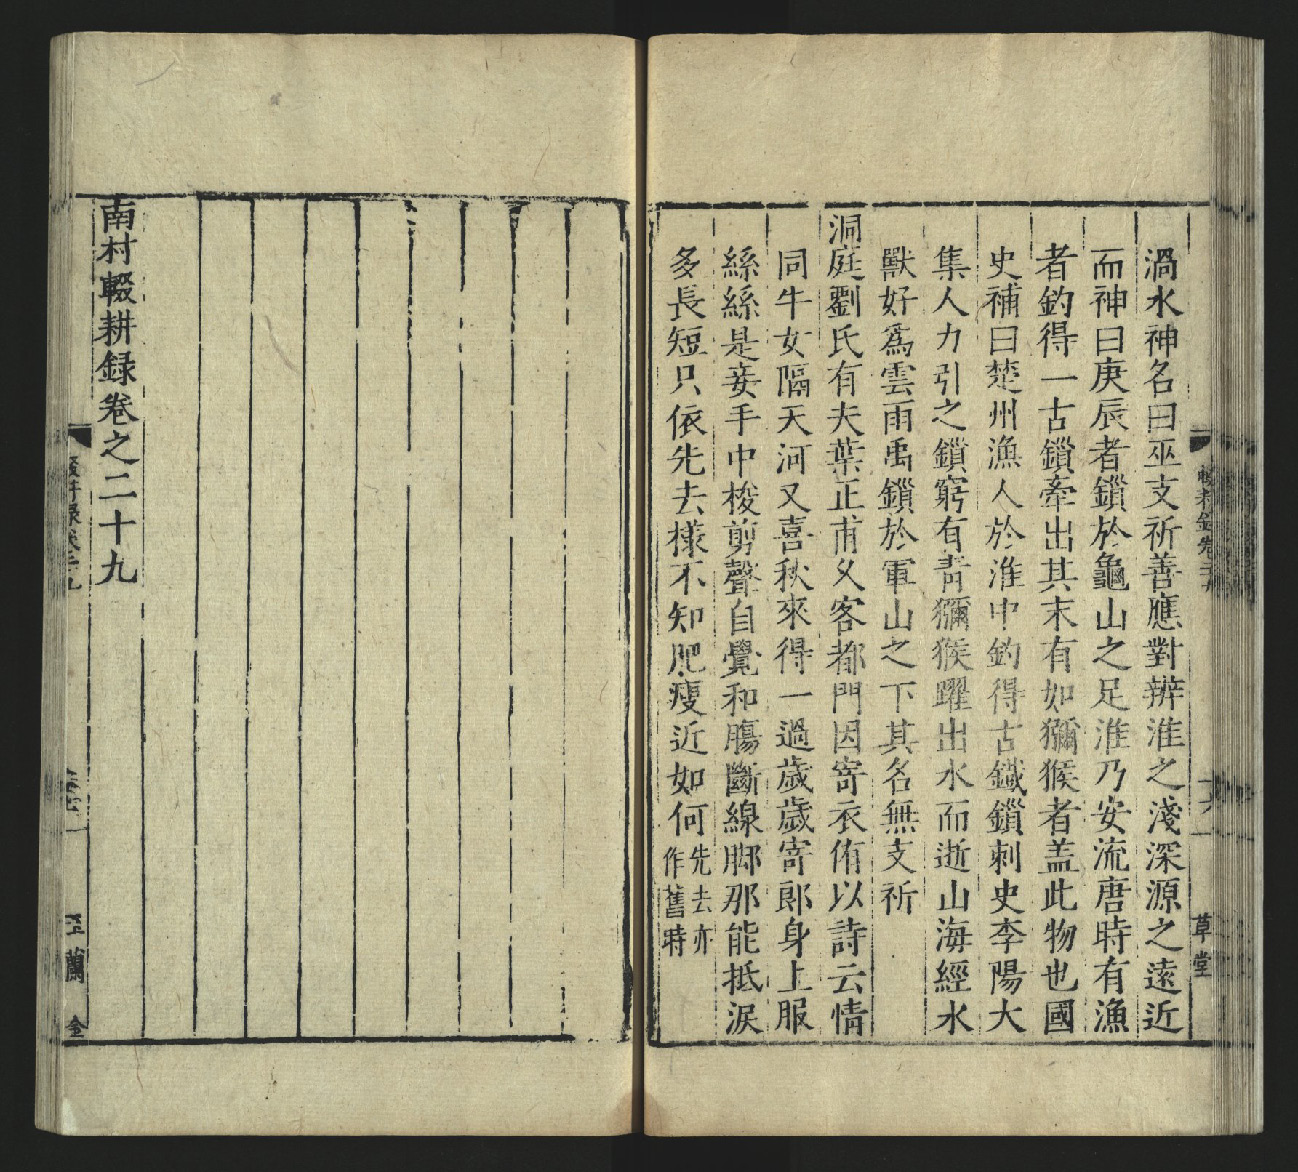 渦水神名曰巫支祈善應對辨淮之淺深源之遠近
而神曰庚辰者鎖於龜山之足淮乃安流唐時有漁
者釣得一古鎖牽出其末有如獼猴者盖此物也國
史補曰楚州漁人於淮中釣得古鐵鎖刺史李陽大
集人力引之鎖窮有青獼猴躍出水而逝山海經水
獸好為雲雨禹鎖於軍山之下其名無支祈
洞庭劉氏有夫葉正甫久客都門因寄衣侑以詩云情
同牛女隔天河又喜秋來得一過歲歲寄郎身上服
絲絲是妾手中梭剪聲自覺和腸斷線脚那能抵淚
多長短只依先去樣不知肥瘦近如何先去亦
作舊時
草堂
南村輟耕録卷之二十九
玉蘭